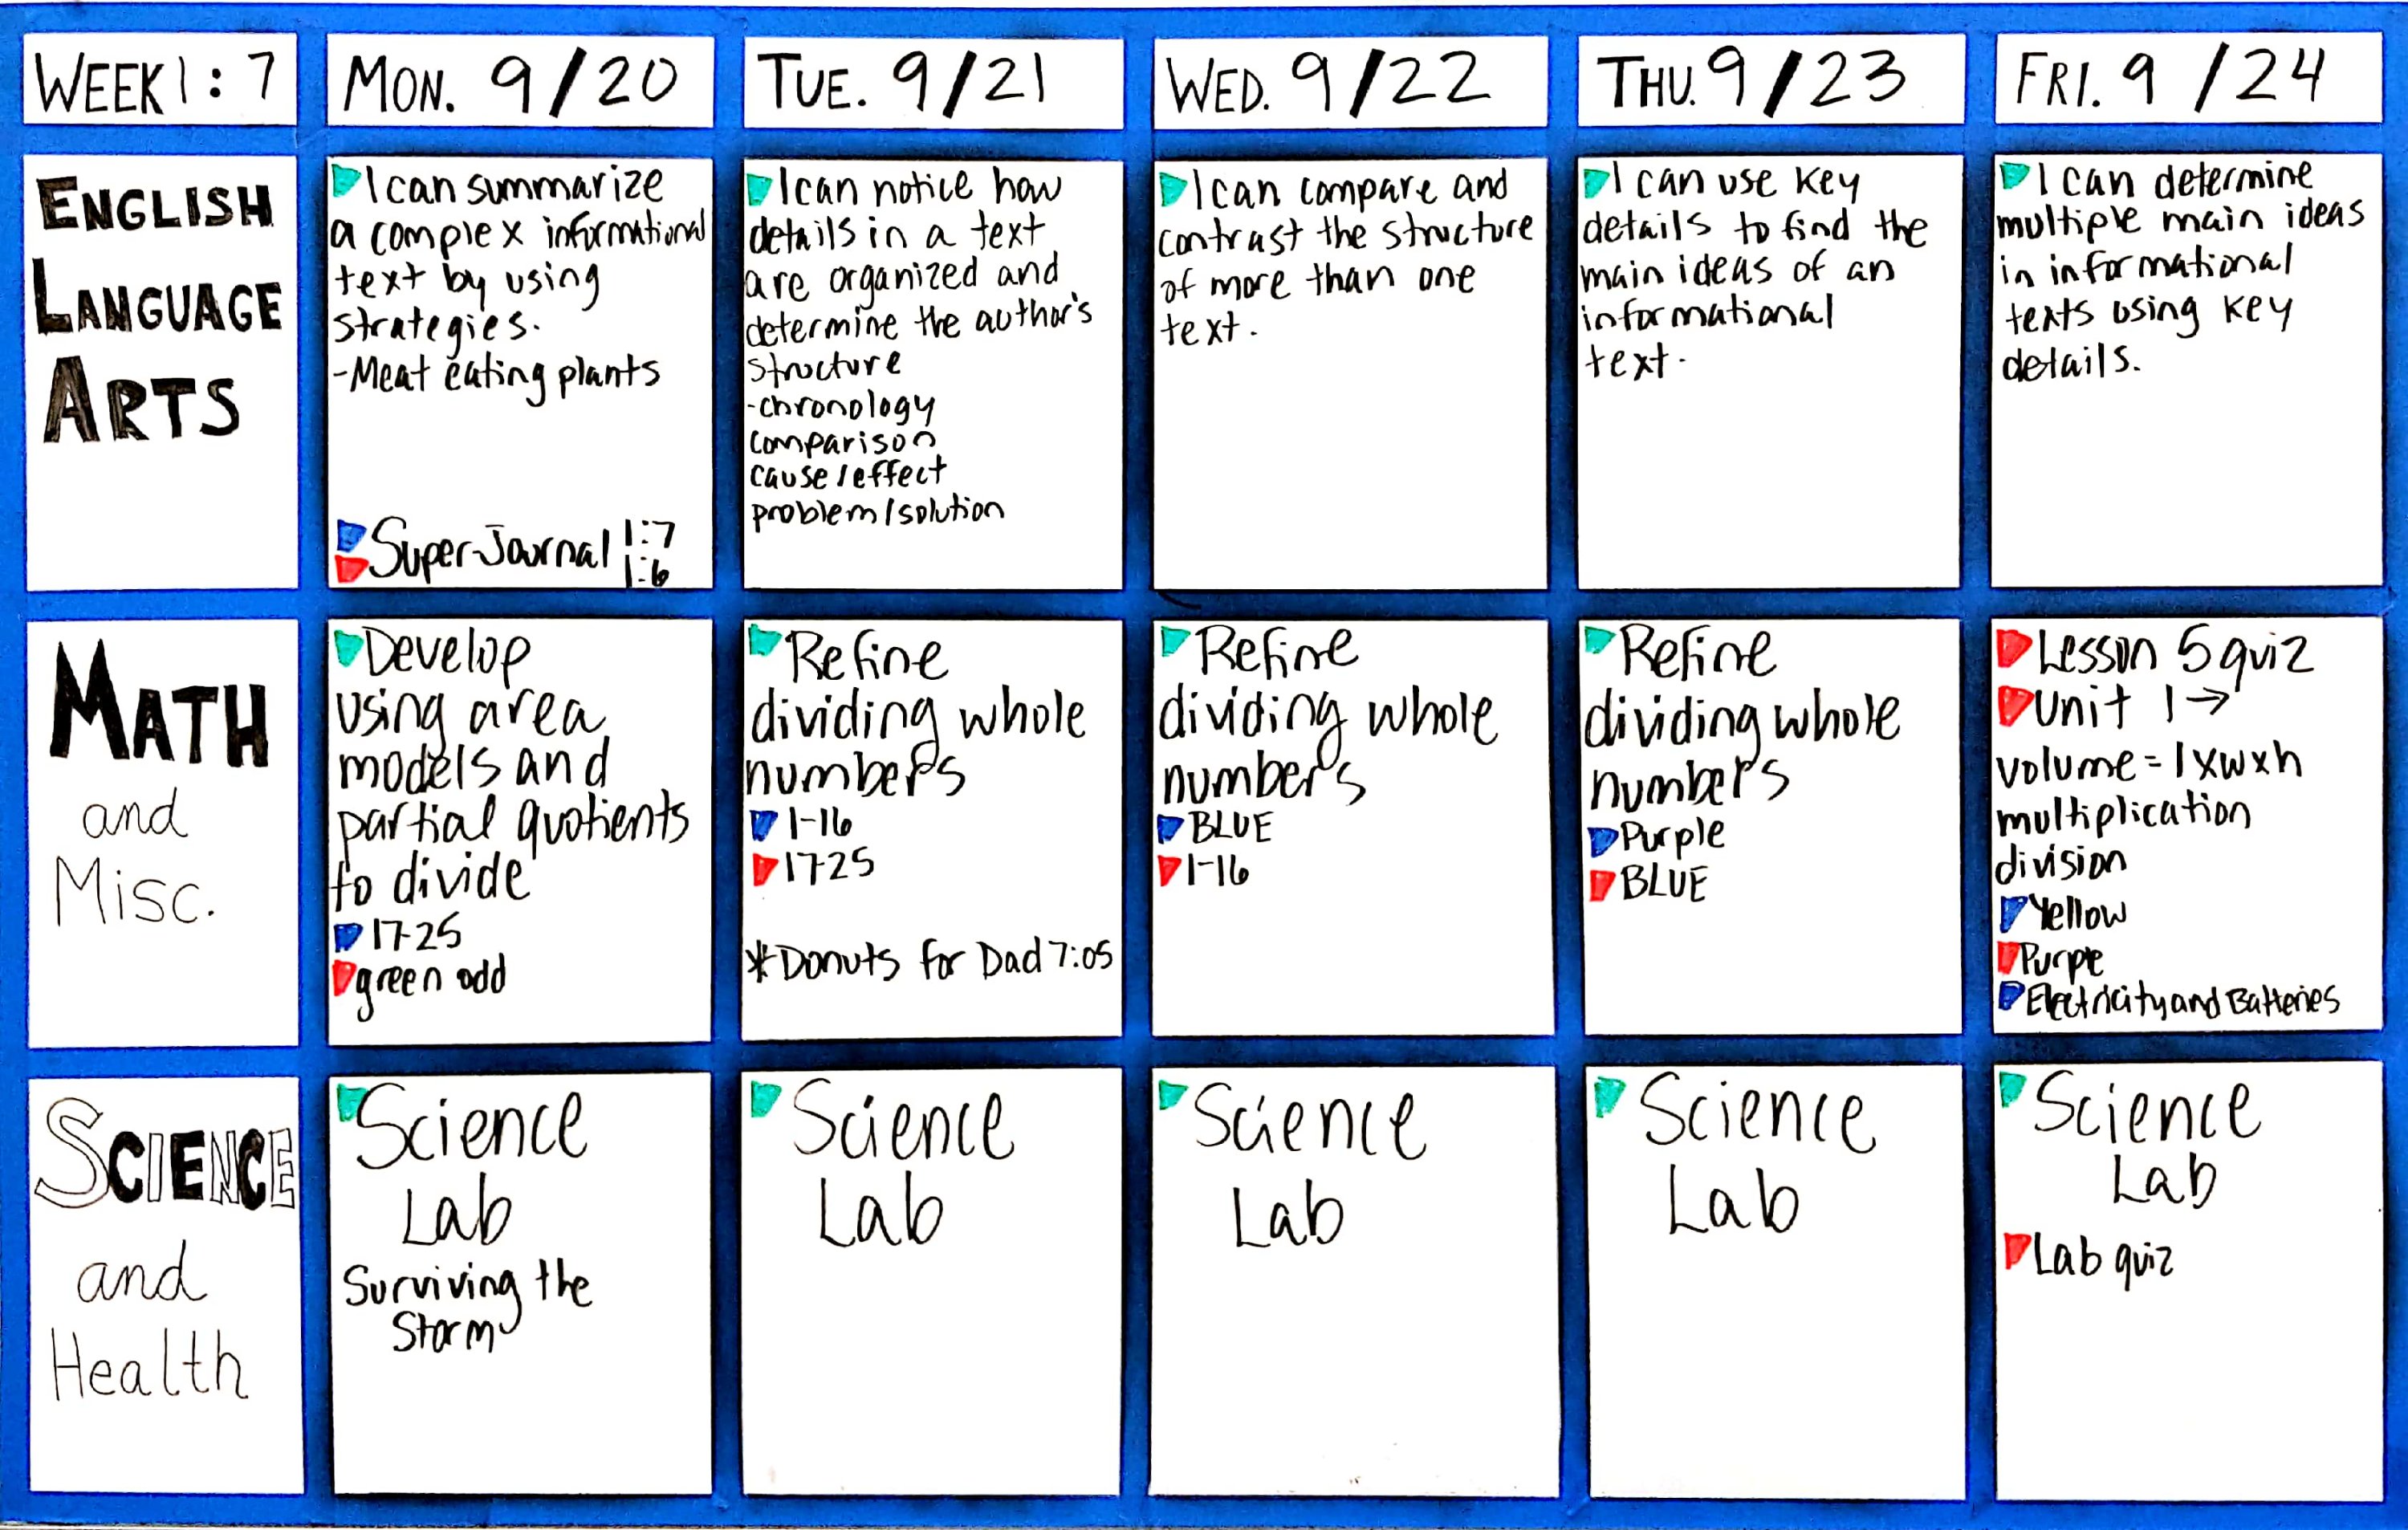 WEEK 1:7
MON. 9/20
TUE. 9/21
WED. 9/22
THU. 9/23
FRI. 9/24
ENGLISH
LANGUAGE
ARTS
I can summarize
a complex informational
text by using
strategies.
-Meat eating plants
Super Journal 1:7
1:6
I can notice how
details in a text
are organized and
determine the author's
structure
-chronology
comparison
cause/effect
problem/solution
I can compare and
contrast the structure
of more than one
text.
I can use key
details to find the
main ideas of an
informational
text.
I can determine
multiple main ideas
in informational
texts using key
details.
MATH
and
Misc.
Develop
using area
models and
partial quotients
to divide
17-25
green odd
Refine
dividing whole
numbers
1-16
17-25
*Donuts for Dad 7:05
Refine
dividing whole
numbers
BLUE
1-16
Refine
dividing whole
numbers
Purple
BLUE
Lesson 5 quiz
Unit 1→
volume = l x w x h
multiplication
division
Yellow
Purple
Electricity and Batteries
SCIENCE
and
Health
Science
Lab
Surviving the
Storm
Science
Lab
Science
Lab
Science
Lab
Science
Lab
Lab quiz